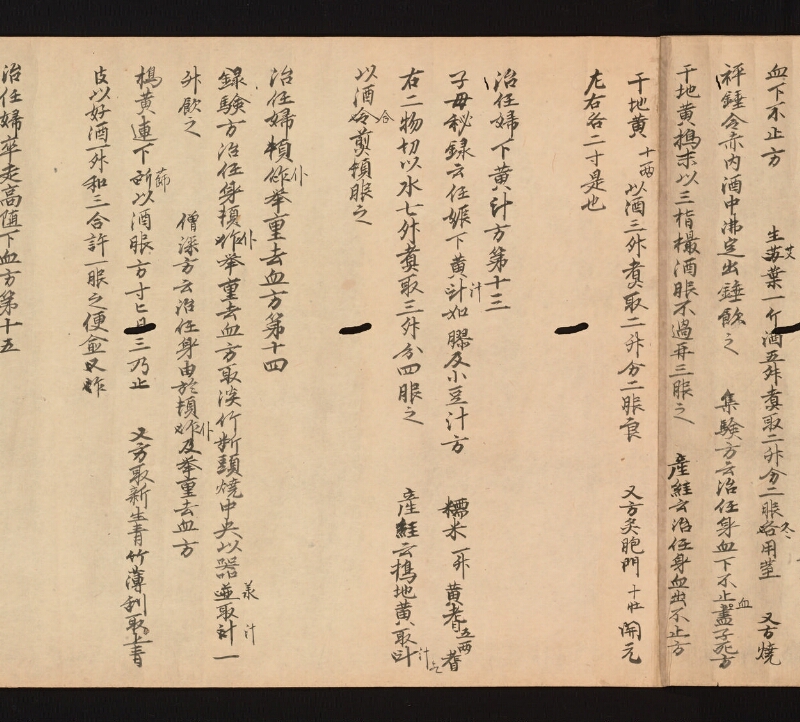 血下不止方 生艾葉一斤酒五升煮取二升分二服冬用莖 又方燒
秤錘令赤内酒中沸定出錘飲之 集驗方云治任身血下不止血盡子死方
干地黄搗末以三指撮酒服不過再三服之 産經云治任身血出不止方
干地黄十兩以酒三升煮取二升分二服良 又方灸胞門十壯關元
左右各二寸是也
治任婦下黄汁方第十三
子母秘録云任娠下黄汁如膠及小豆汁方 糯米一升黄耆五兩
右二物切以水七升煮取三升分四服之 産經云搗地黄取汁
以酒合煎頓服之
治任婦頓仆舉重去血方第十四
録驗方治任身頓仆舉重去血方取淡竹斷頭燒中央以器承取汁一
升飲之 僧深方云治任身由於頓仆及舉重去血方
搗黄連下篩以酒服方寸匕日三乃止 又方取新生青竹薄刮取上青
皮以好酒一升和三合許一服之便愈又作
治任婦卒走高墮下血方第十五